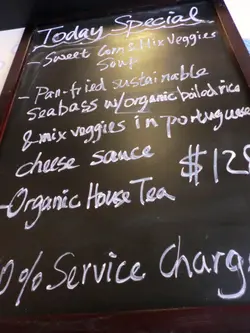 Today Special
- Sweet Corn & Mix Veggies
Soup
- Pan-fried sustainable
seabass w/organic boiled rice
& mix veggies in portuguese
cheese sauce
$128
- Organic House Tea
0% Service Charg